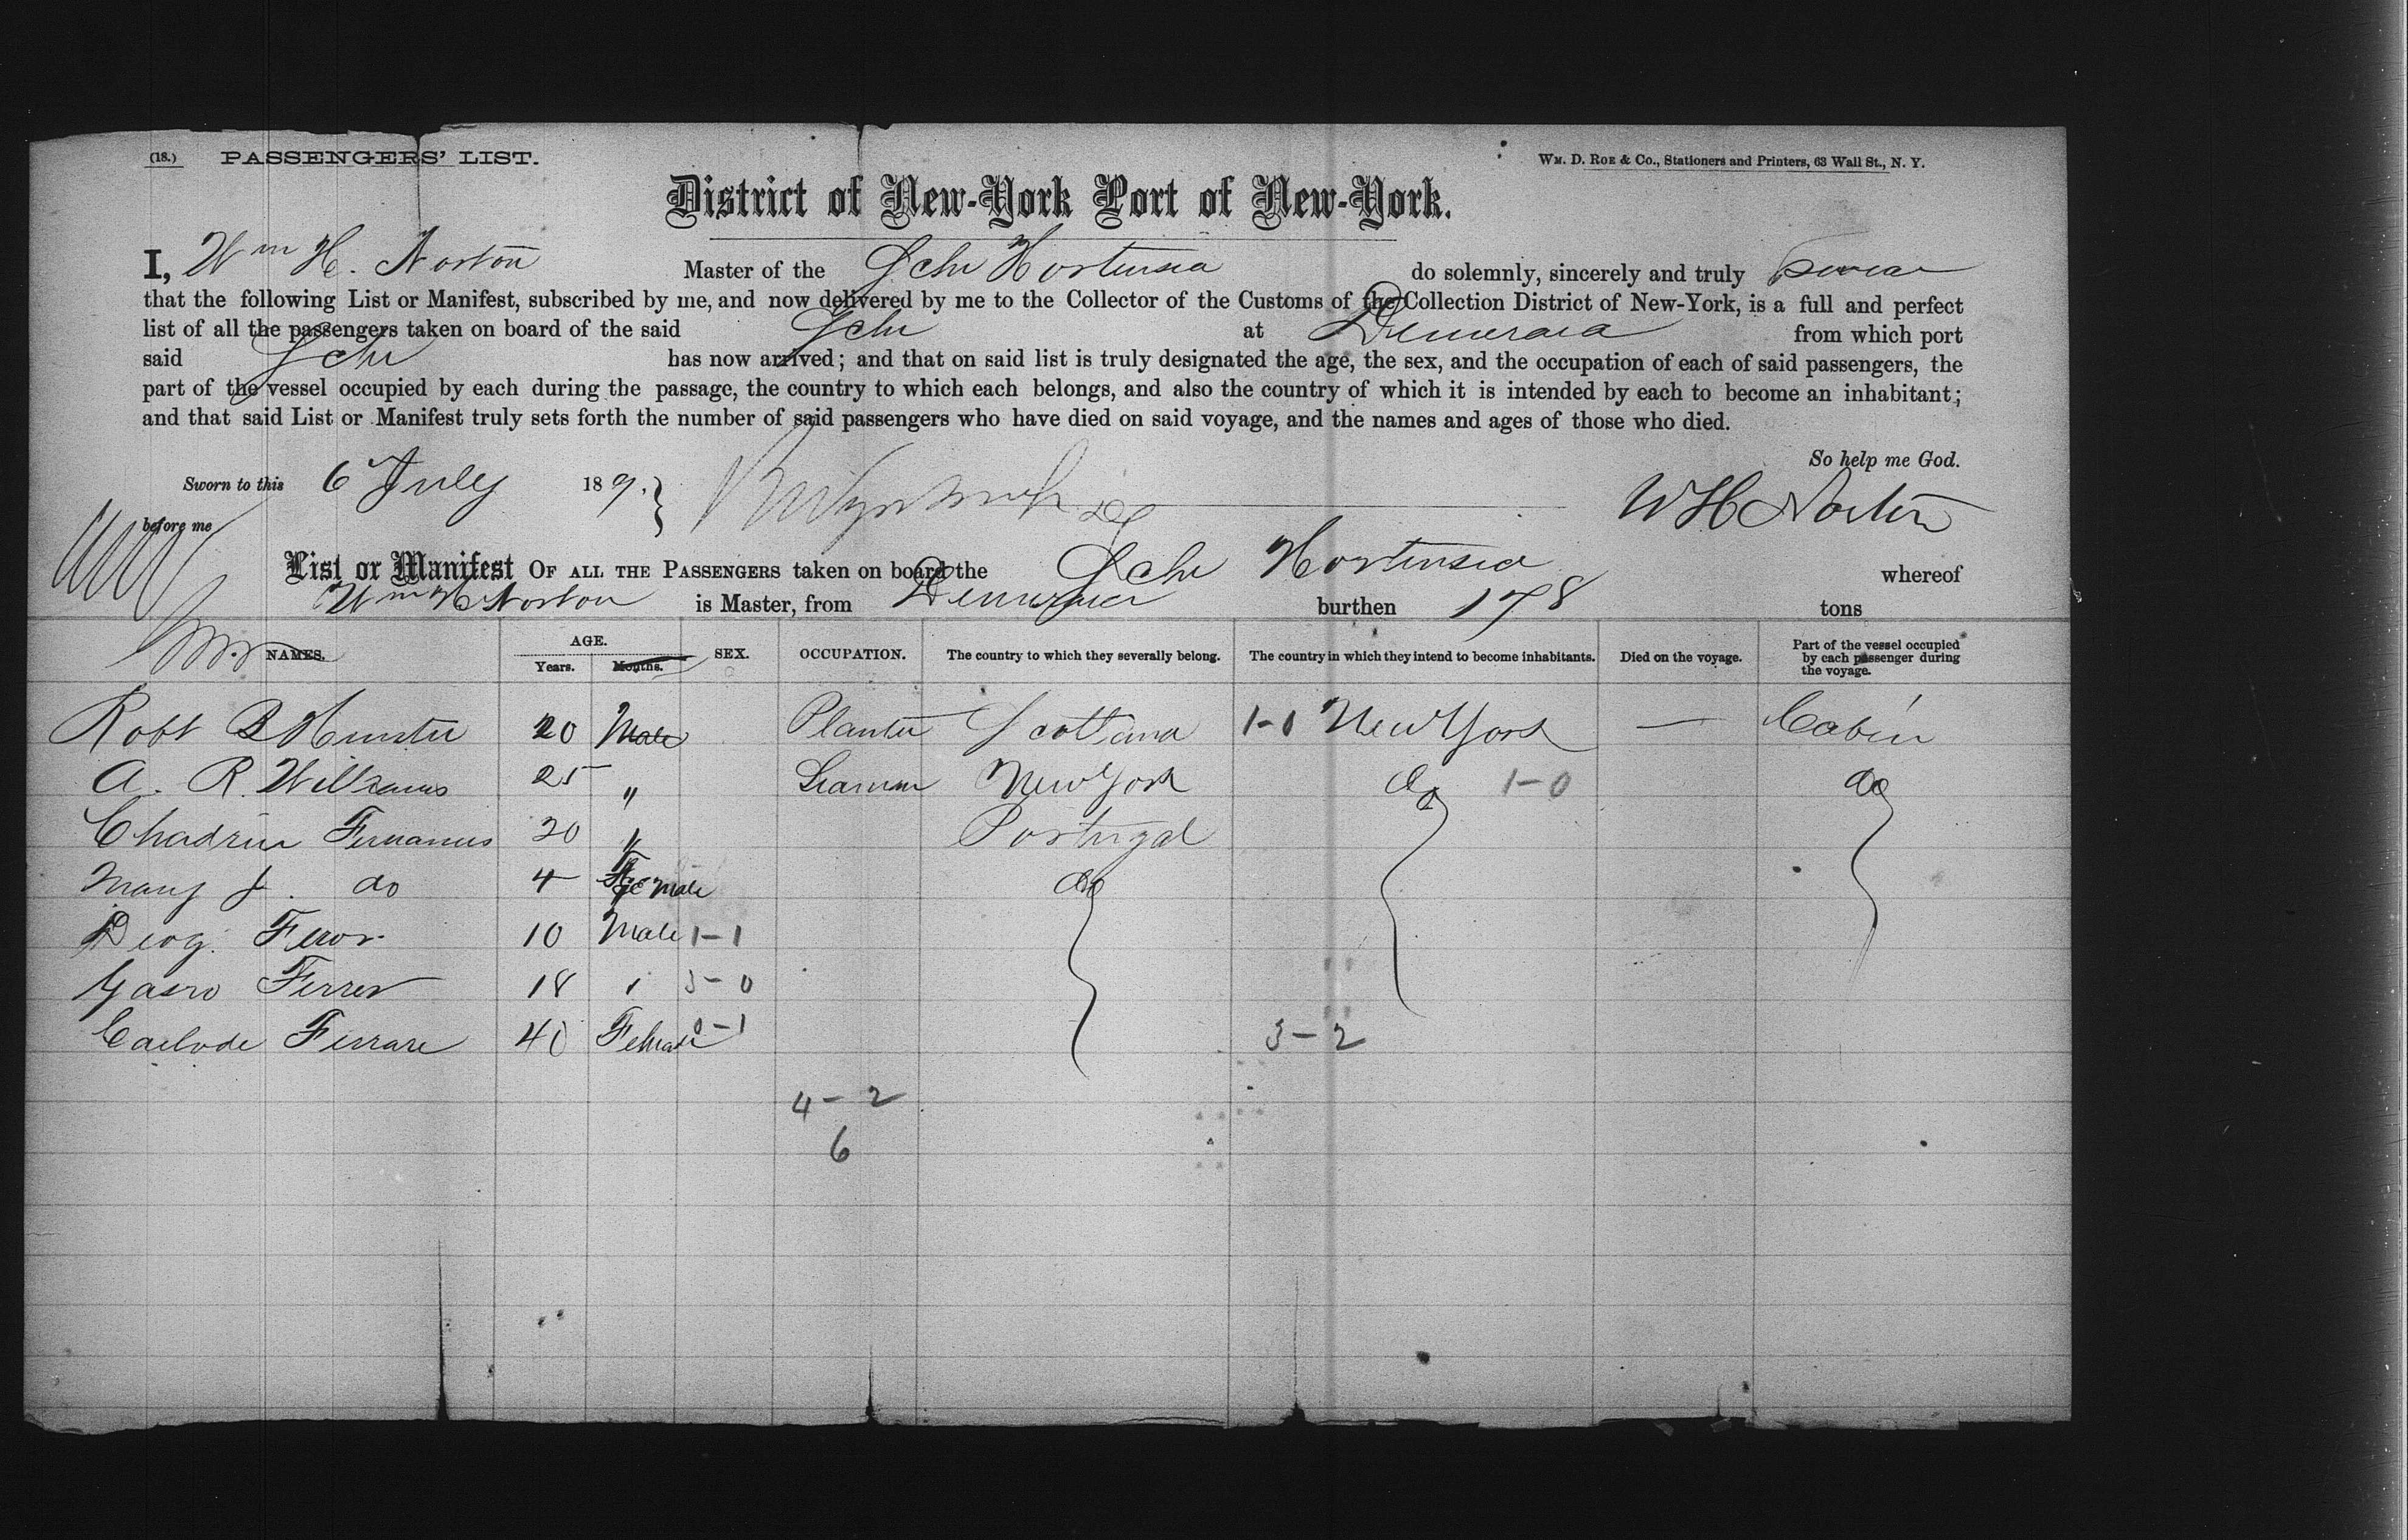 (18.) PASSENGERS' LIST.
WM. D. ROE & CO., Stationers and Printers, 63 Wall St., N. Y.
District of New-York Port of New-York.
I, Wm H. Norton Master of the Schr Hortensia do solemnly, sincerely and truly swear
that the following List or Manifest, subscribed by me, and now delivered by me to the Collector of the Customs of the Collection District of New-York, is a full and perfect
list of all the passengers taken on board of the said Schr at Demerara from which port
said Schr has now arrived; and that on said list is truly designated the age, the sex, and the occupation of each of said passengers, the
part of the vessel occupied by each during the passage, the country to which each belongs, and also the country of which it is intended by each to become an inhabitant;
and that said List or Manifest truly sets forth the number of said passengers who have died on said voyage, and the names and ages of those who died.
So help me God.
Sworn to this 6 July 189.
WH Norton
before me
List or Manifest OF ALL THE PASSENGERS taken on board the Schr Hortensia whereof
Wm H Norton is Master, from Demerara burthen 178 tons
NAMES. AGE. Years. Months. SEX. OCCUPATION. The country to which they severally belong. The country in which they intend to become inhabitants. Died on the voyage. Part of the vessel occupied by each passenger during the voyage.
Robt B Hunter 20 Male Planter Scotland 1-0 New York — Cabin
A. R. Williams 25 " Seaman New York do 1-0 do
20 " Portugal
Mary J. do 4 Female do
Feror 10 Male 1-1
Ferrer 18 " 3-0
Ferrare 40 Female 0-1 3-2
4-2
6